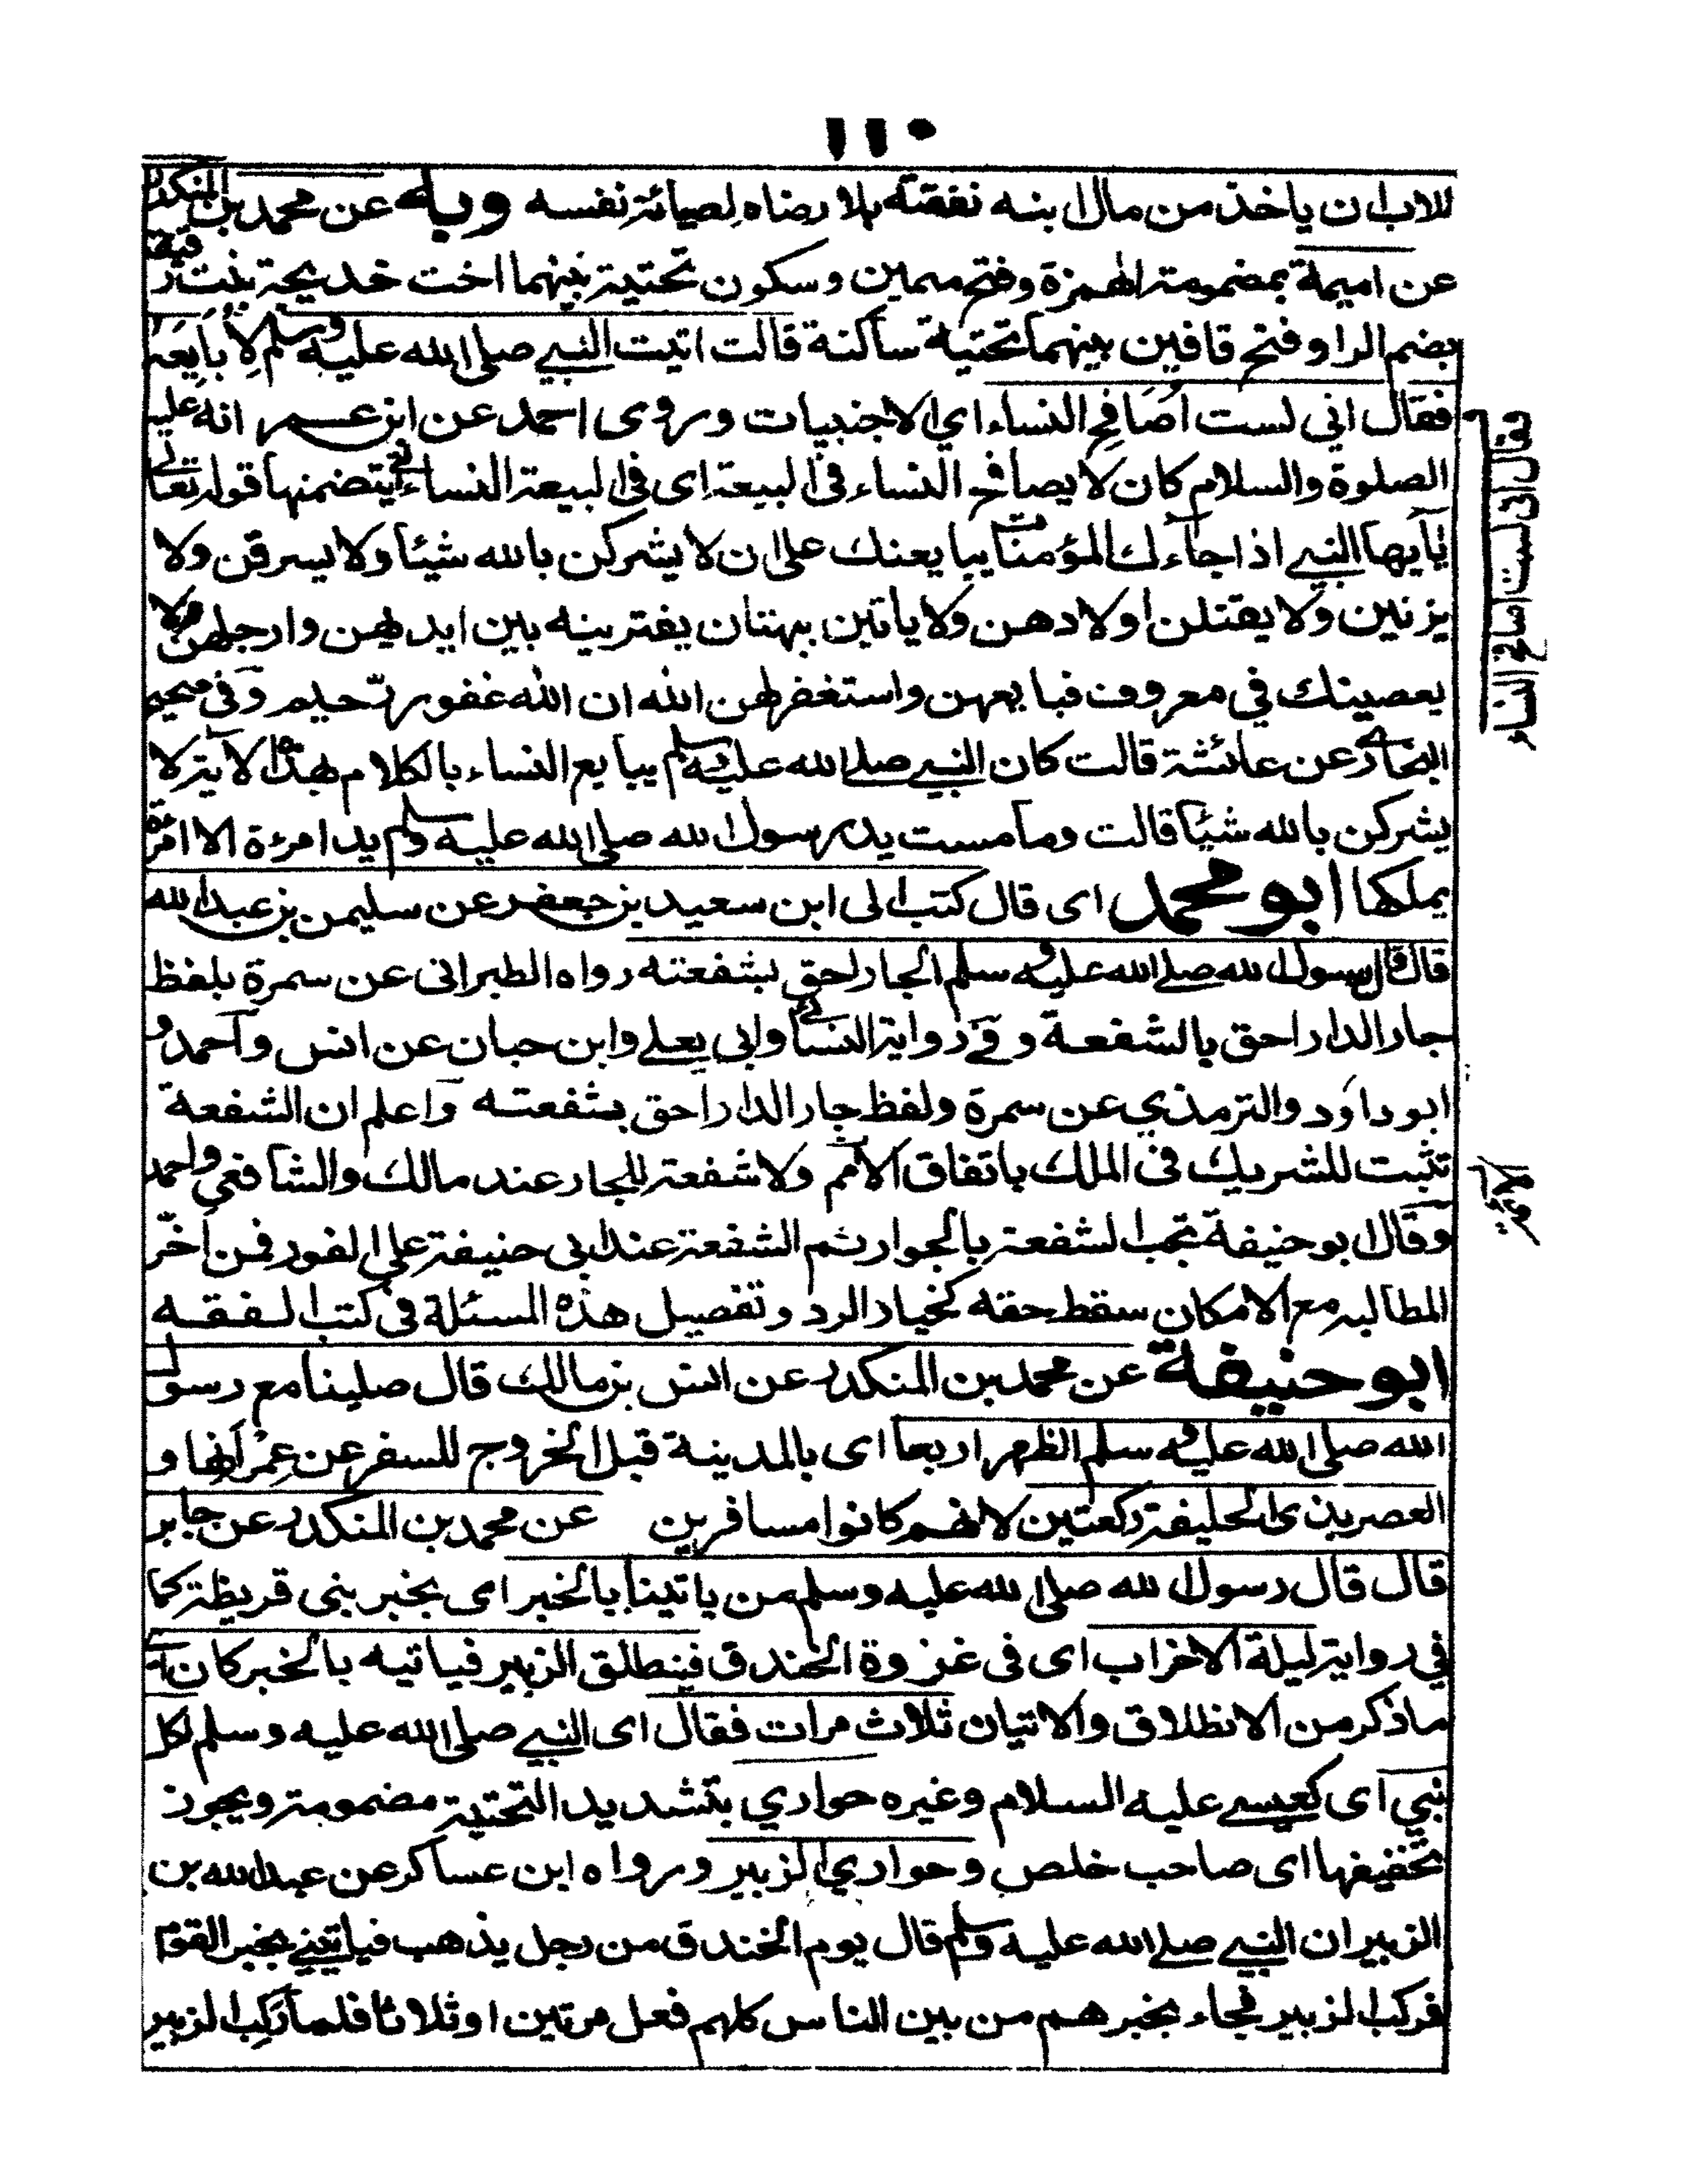 ١١٠
للاب ان ياخذ من مال ابنه نفقته بلا رضاه لصيانة نفسه وبه عن محمد بن المنكدر
عن اميمة بمضمومة الهمزة وفتح ميمين وسكون تحتية بينهما اخت خديجة بنت رقيقة
بضم الرا وفتح قافين بينهما تحتية ساكنة قالت اتيت النبي صلى الله عليه وسلم لابايعه
فقال اني لست اصافح النساء اي الاجنبيات وروى احمد عن ابن عمر انه عليه
الصلوة والسلام كان لا يصافح النساء في البيعة اى في البيعة النساء يتضمنها قوله تعالى
يٰآيها النبي اذا جاءك المؤمنات يبايعنك على ان لا يشركن بالله شيئا ولا يسرقن ولا
يزنين ولا يقتلن اولادهن ولا ياتين ببهتان يفترينه بين ايديهن وارجلهن ولا
يعصينك في معروف فبايعهن واستغفر لهن الله ان الله غفور رّحيم وفى صحيح
البخارى عن عائشة قالت كان النبي صلى الله عليه وسلم يبايع النساء بالكلام بهذه الآية لا
يشركن بالله شيئا قالت وما مست يد رسول الله صلى الله عليه وسلم يد امرءة الا امرءة
يملكها ابو محمد اى قال كتب الى ابن سعيد بن جعفر عن سليمن بن عبد الله
قال قال رسول الله صلى الله عليه وسلم الجار احق بشفعته رواه الطبرانى عن سمرة بلفظ
جار الدار احق بالشفعة وفي رواية النسائي وابي يعلى وابن حبان عن انس واحمد و
ابو داود والترمذي عن سمرة ولفظ جار الدار احق بشفعته واعلم ان الشفعة
تثبت للشريك فى الملك باتفاق الآمم ولا شفعة للجار عند مالك والشافعي واحمد
وقال ابو حنيفة تجب الشفعة بالجوار ثم الشفعة عند ابى حنيفة على الفور فمن اخّر
المطالبه مع الامكان سقط حقه كخيار الرد وتفصيل هذه المسئلة فى كتب الفقه
ابو حنيفة عن محمد بن المنكدر عن انس بن مالك قال صلينا مع رسول
الله صلى الله عليه وسلم الظهر اربعا اى بالمدينة قبل الخروج للسفر عن عمرانها و
العصر بذى الحليفة ركعتين لانهم كانوا مسافرين عن محمد بن المنكدر عن جابر
قال قال رسول الله صلى الله عليه وسلم من ياتينا بالخبر اى بخبر بنى قريظة كما
في رواية ليلة الاخزاب اى فى غزوة الخندق فينطلق الزبير فياتيه بالخبر كان
ما ذكر من الانطلاق والاتيان ثلاث مرات فقال اى النبي صلى الله عليه وسلم لكل
نبي اى كعيسے عليه السلام وغيره حواري بتشديد التحتية مضمومة ويجوز
تخفيفها اى صاحب خلص وحواري الزبير ورواه ابن عساكر عن عبد الله بن
الزبير ان النبي صلى الله عليه وسلم قال يوم الخندق من رجل يذهب فياتيني بخبر القوم
فركب الزبير فجاء بخبرهم من بين الناس كلهم فعل مرتين او ثلاثا فلما ركب الزبير
فقال انى لست اصافح النساء
الائمة